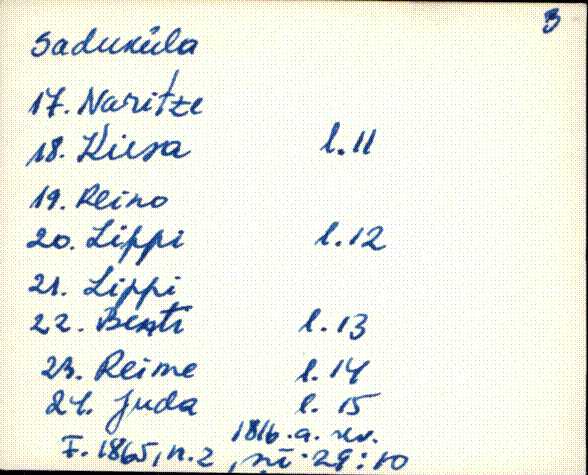 3
Saduküla
17. Naritze
18. Kiesa l. 11
19. Reino
20. Lippi l. 12
21. Lippi
22. Benti l. 13
23. Reime l. 14
24. Juda l. 15
1816. a. rev.
F. 1865, n. 2, sü. 29:10